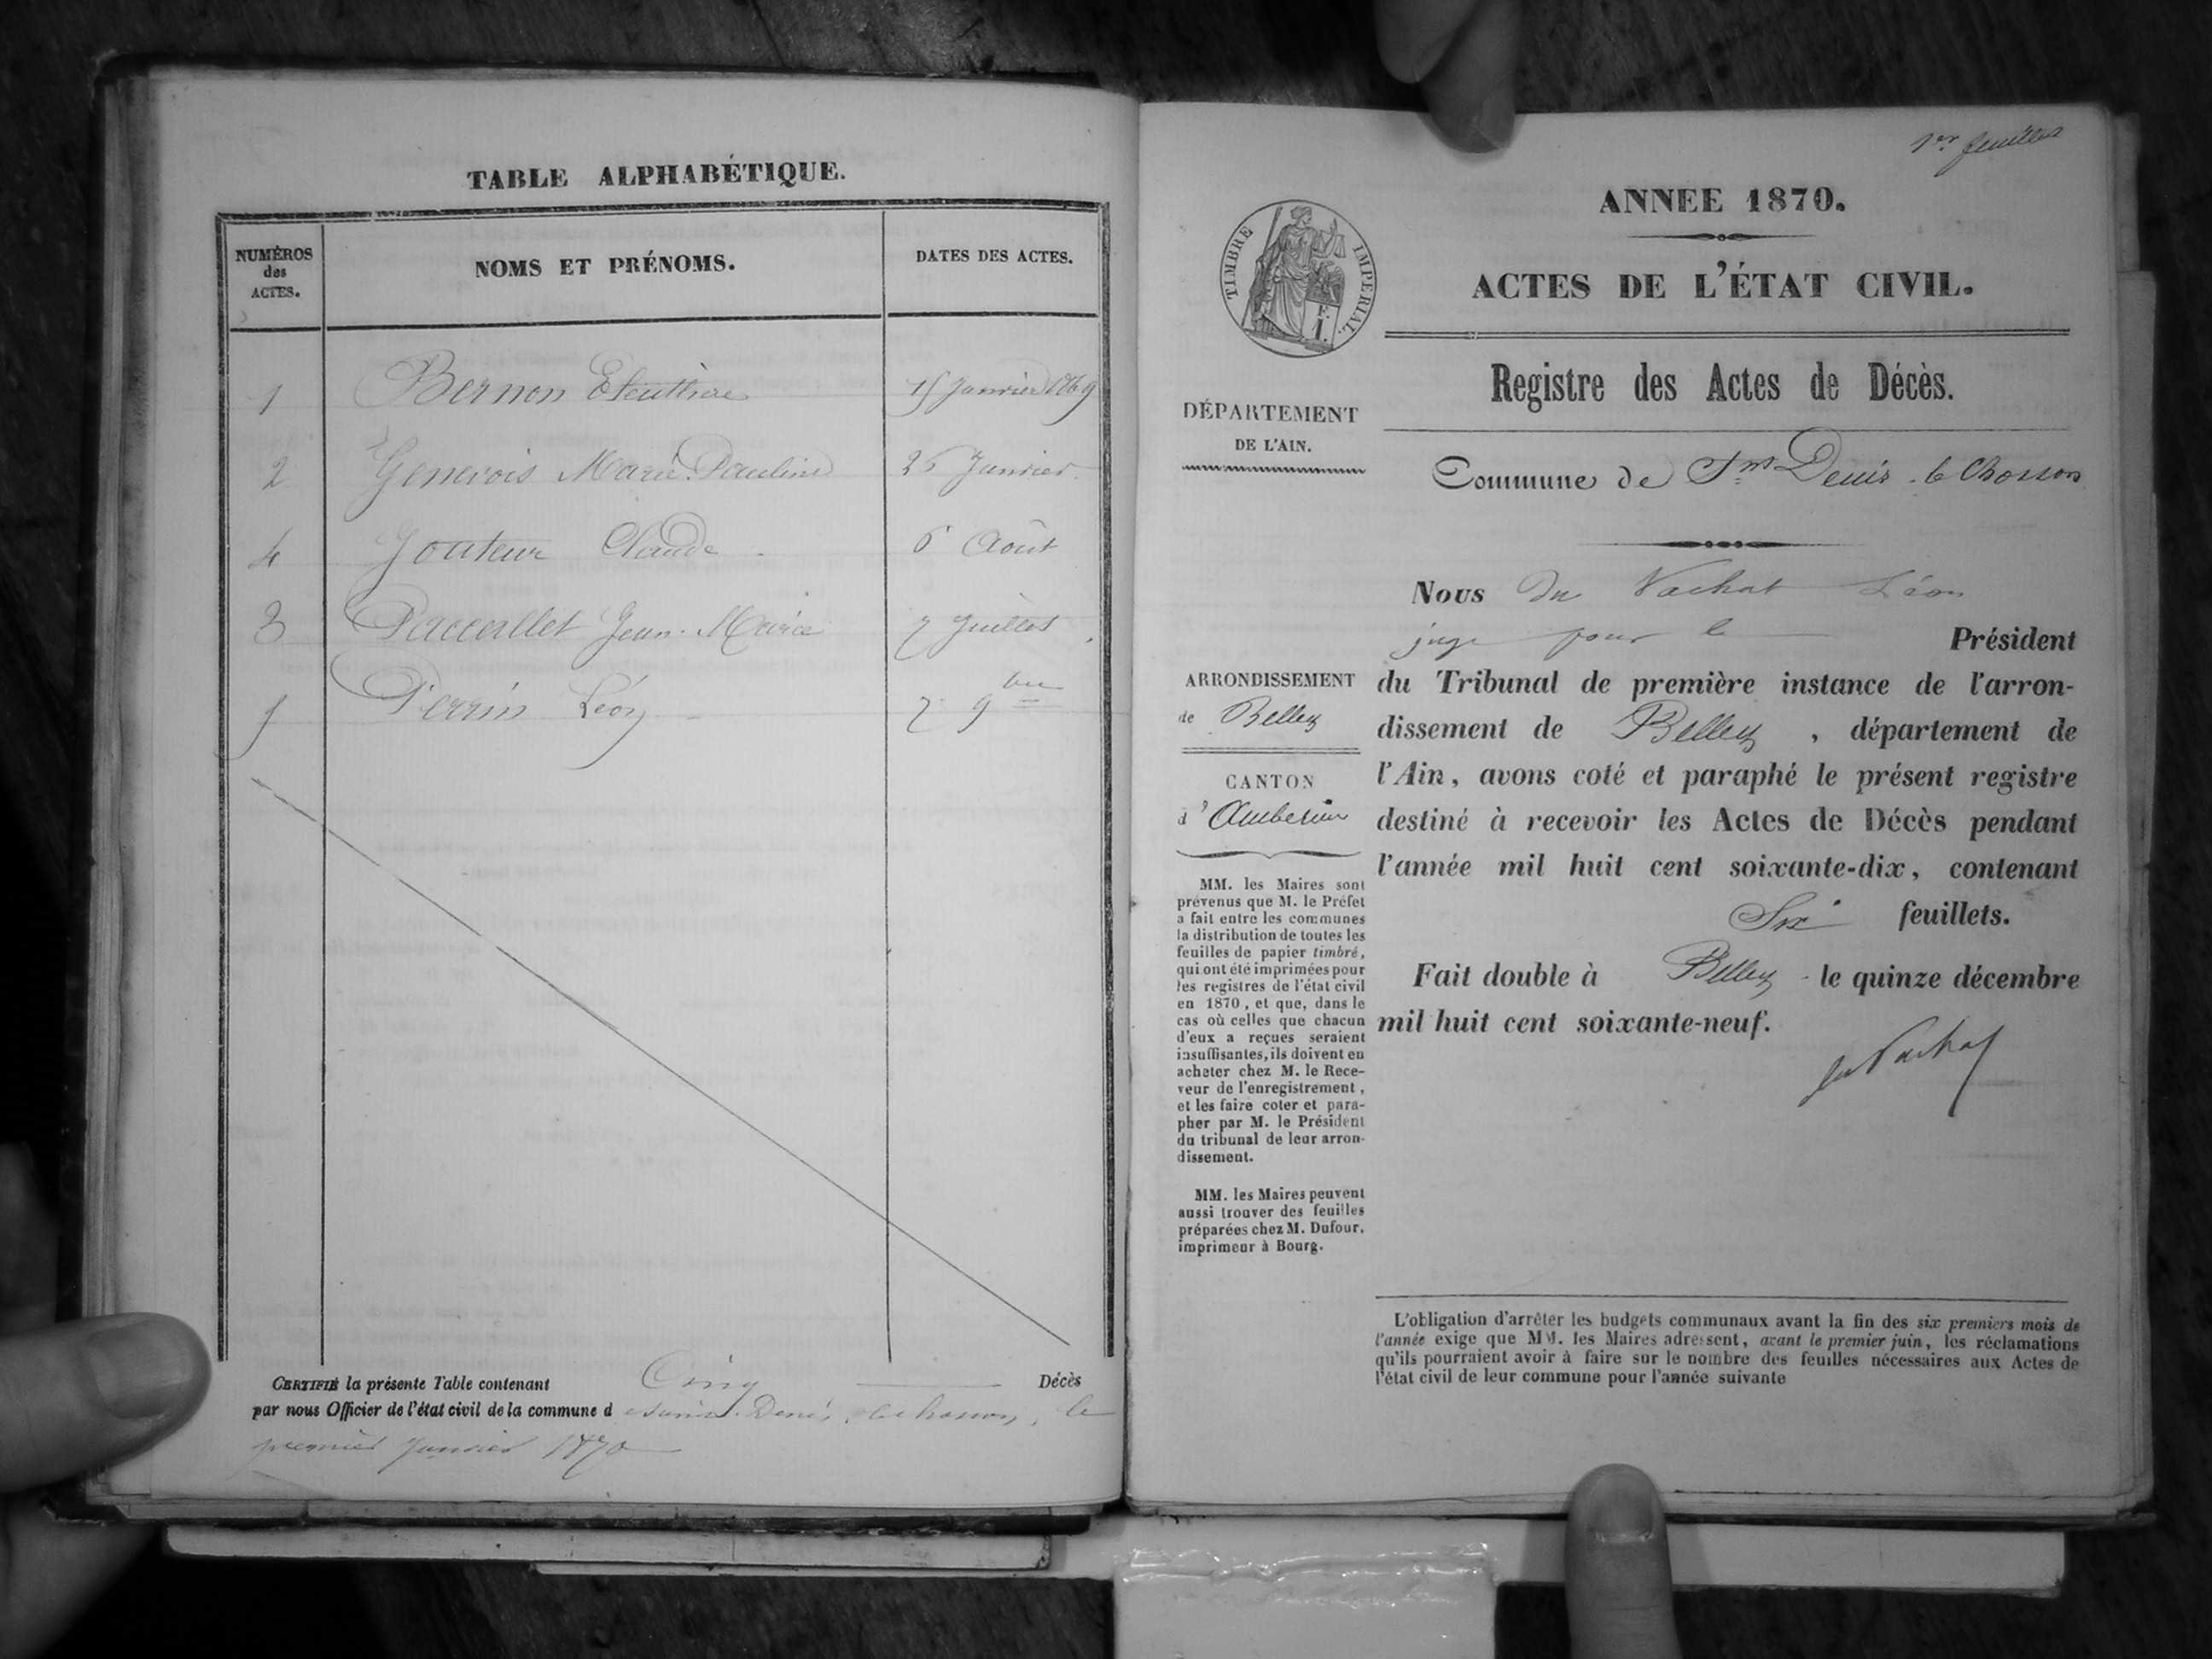 TABLE ALPHABÉTIQUE.
NUMÉROS
des
ACTES.
NOMS ET PRÉNOMS.
DATES DES ACTES.
1 Bernon Eleuthère 15 Janvier 1869
2 Genevois Marie Pauline 25 Janvier
4 Jouteur Claude 6 Août
3 Paccallet Jean-Marie 7 Juillet
5 Perrin Léon 7 9bre
CERTIFIÉ la présente Table contenant Cinq Décès
par nous Officier de l'état civil de la commune d
premier Janvier 1870
1er feuillet
ANNEE 1870.
ACTES DE L'ÉTAT CIVIL.
TIMBRE IMPERIAL.
F.
1.
Registre des Actes de Décès.
DÉPARTEMENT
DE L'AIN.
Commune de St Denis le Chosson
Nous Du Vachat Léon
juge pour le Président
ARRONDISSEMENT
de Belley
du Tribunal de première instance de l'arron-
dissement de Belley, département de
l'Ain, avons coté et paraphé le présent registre
destiné à recevoir les Actes de Décès pendant
l'année mil huit cent soixante-dix, contenant
Six feuillets.
Fait double à Belley le quinze décembre
mil huit cent soixante-neuf.
du Vachat
CANTON
d'Ambérieu
MM. les Maires sont
prévenus que M. le Préfet
a fait entre les communes
la distribution de toutes les
feuilles de papier timbré,
qui ont été imprimées pour
les registres de l'état civil
en 1870, et que, dans le
cas où celles que chacun
d'eux a reçues seraient
insuffisantes, ils doivent en
acheter chez M. le Rece-
veur de l'enregistrement,
et les faire coter et para-
pher par M. le Président
du tribunal de leur arron-
dissement.
MM. les Maires peuvent
aussi trouver des feuilles
préparées chez M. Dufour,
imprimeur à Bourg.
L'obligation d'arrêter les budgets communaux avant la fin des six premiers mois de
l'année exige que MM. les Maires adressent, avant le premier juin, les réclamations
qu'ils pourraient avoir à faire sur le nombre des feuilles nécessaires aux Actes de
l'état civil de leur commune pour l'année suivante